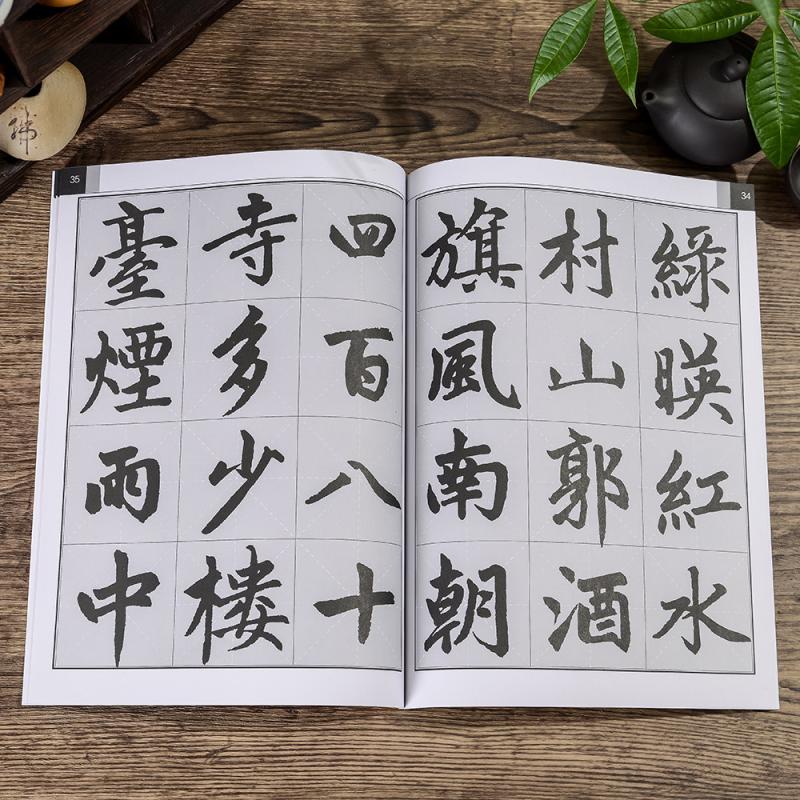 34
綠暎紅水
村山郭酒
旗風南朝
35
四百八十
寺多少樓
臺煙雨中